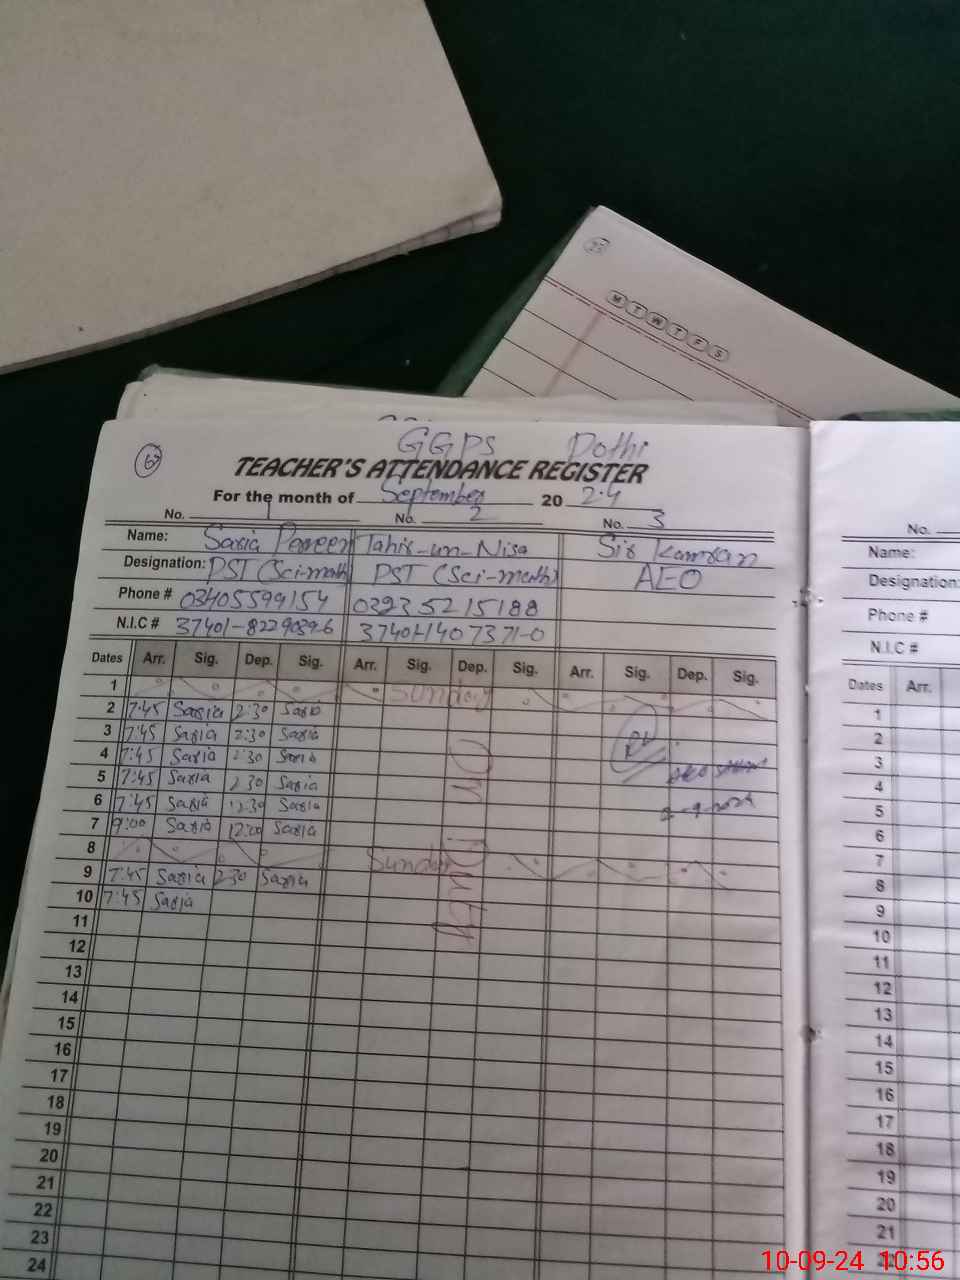 23
M T W T F S
6
GGPS Dothi
TEACHER'S ATTENDANCE REGISTER
For the month of September 2024
No. 1 No. 2 No. 3
Name: Saria Perveen Tahir-un-Nisa Sir Kamran
Designation: PST (Sci-math) PST (Sci-math) AEO
Phone # 03405599154 03235215188
N.I.C # 37401-8229039-6 37401-1407371-0
Dates Arr. Sig. Dep. Sig. Arr. Sig. Dep. Sig. Arr. Sig. Dep. Sig.
1 Sunday
2 7:45 Saria 2:30 Saria
3 7:45 Saria 2:30 Saria
4 7:45 Saria 2:30 Saria
5 7:45 Saria 2:30 Saria
6 7:45 Saria 12:30 Saria
7 9:00 Saria 12:00 Saria
8 Sunday
9 7:45 Saria 2:30 Saria
10 7:45 Saria
11
12
13
14
15
16
17
18
19
20
21
22
23
24
No.
Name:
Designation:
Phone #
N.I.C #
Dates Arr.
1
2
3
4
5
6
7
8
9
10
11
12
13
14
15
16
17
18
19
20
21
10-09-24 10:56